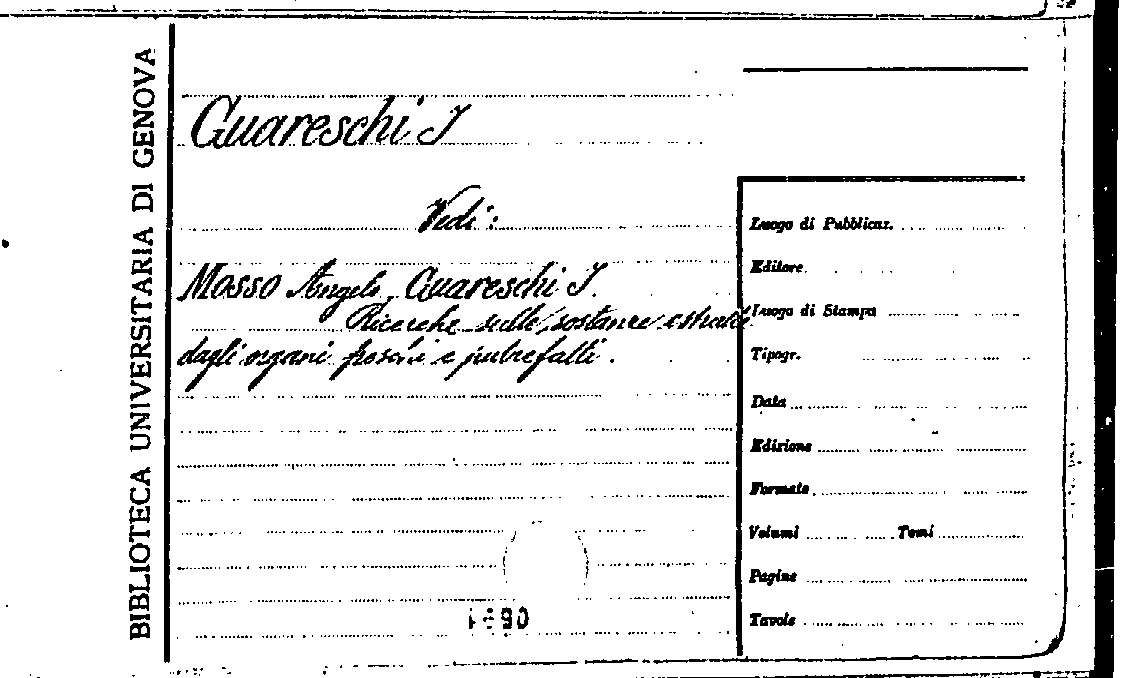 BIBLIOTECA UNIVERSITARIA DI GENOVA
Guareschi I
Vedi:
Mosso Angelo, Guareschi I.
Ricerche sulle sostanze estratte
dagli organi freschi e putrefatti.
Luogo di Pubblicaz.
Editore
Luogo di Stampa
Tipogr.
Data
Edizione
Formato
Volumi Tomi
Pagine
Tavole